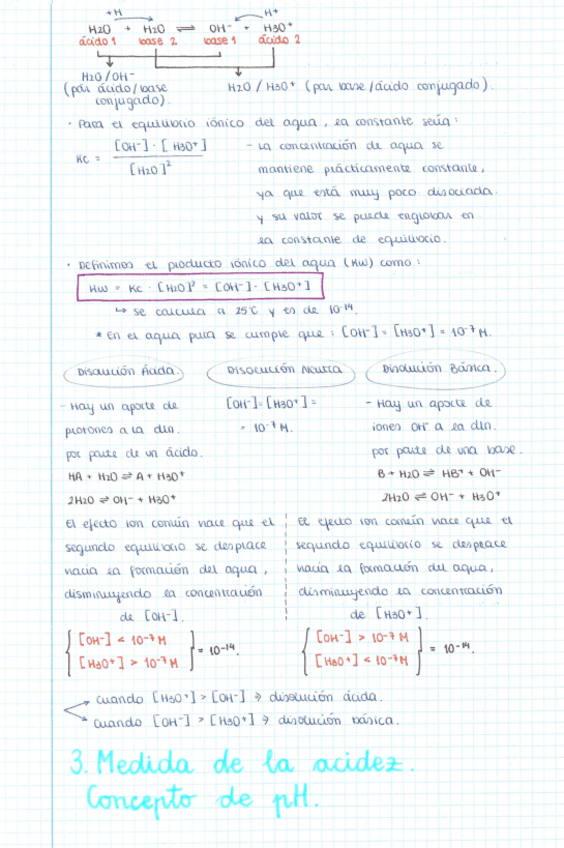 +H H+
H2O + H2O ⇌ OH- + H3O+
ácido 1 base 2 base 1 ácido 2
H2O / OH-
(par ácido/base
conjugado).
H2O / H3O+ (par base/ácido conjugado).
· Para el equilibrio iónico del agua, la constante sería:
Kc = [OH-] · [H3O+] / [H2O]²
- La concentración de agua se
mantiene prácticamente constante,
ya que está muy poco disociada.
y su valor se puede englobar en
la constante de equilibrio.
· Definimos el producto iónico del agua (Kw) como:
Kw = Kc · [H2O]² = [OH-] · [H3O+]
↳ se calcula a 25ºC y es de 10-14.
* En el agua pura se cumple que: [OH-] = [H3O+] = 10-7 M.
Disolución Ácida.
- Hay un aporte de
protones a la dln.
por parte de un ácido.
HA + H2O ⇌ A + H3O+
2H2O ⇌ OH- + H3O+
El efecto ion común hace que el
segundo equilibrio se desplace
hacia la formación del agua,
disminuyendo la concentración
de [OH-].
{ [OH-] < 10-7 M
[H3O+] > 10-7 M } = 10-14.
Disolución Neutra
[OH-] = [H3O+] =
= 10-7 M.
Disolución Básica.
- Hay un aporte de
iones OH- a la dln.
por parte de una base.
B + H2O ⇌ HB+ + OH-
2H2O ⇌ OH- + H3O+
El efecto ion común hace que el
segundo equilibrio se desplace
hacia la formación del agua,
disminuyendo la concentración
de [H3O+].
{ [OH-] > 10-7 M
[H3O+] < 10-7 M } = 10-14.
cuando [H3O+] > [OH-] → disolución ácida.
cuando [OH-] > [H3O+] → disolución básica.
3. Medida de la acidez.
Concepto de pH.